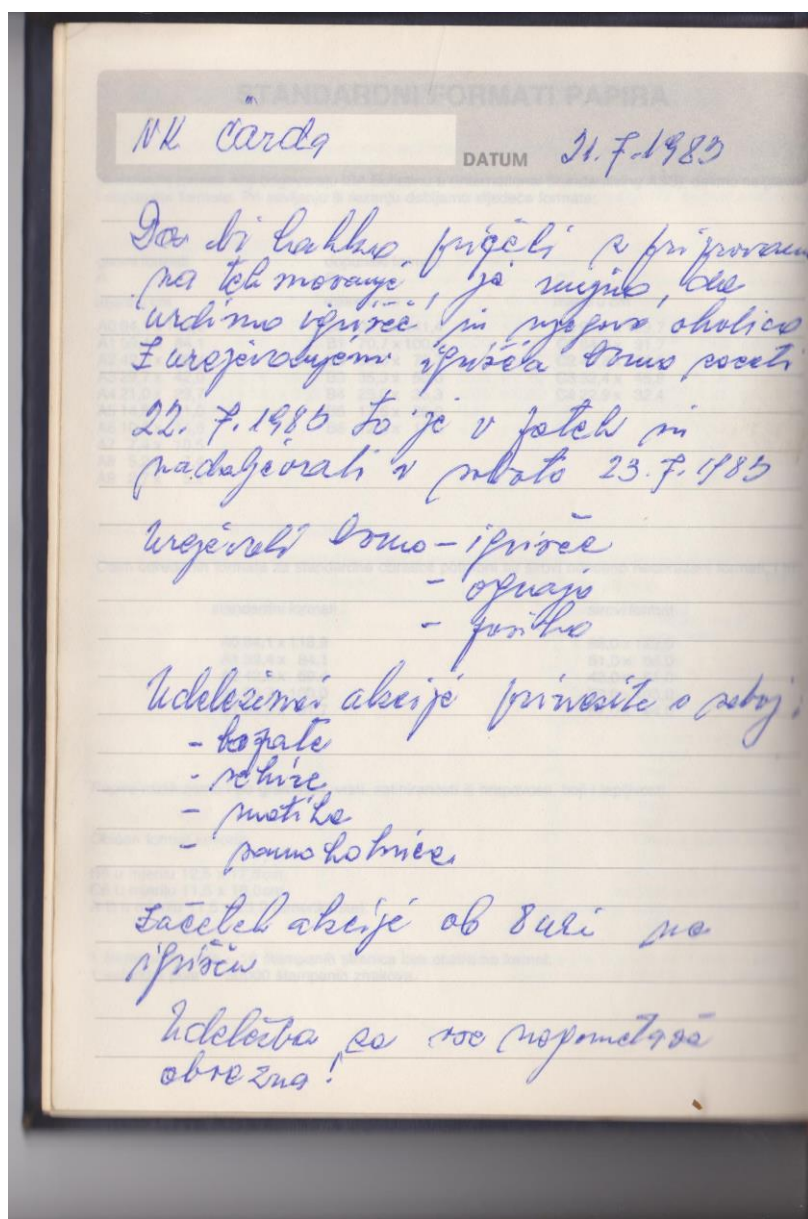 NK Čarda
DATUM 21.7.1983
Da bi lahko pričeli s pripravami
na tekmovanje, je nujno, da
urdimo igrišče in njegovo okolico
Z urejevanjem igrišča bomo začeli
22. 7. 1983 to je v petek in
nadaljevali v soboto 23.7.1983
Urejevali bomo - igrišče
- ograjo
-
Udeleženci akcije prinesite s seboj:
- lopate
-
- motike
- samokolnice
Začetek akcije ob 8 uri na
igrišču
Udeležba za vse nogometaše
obvezna!